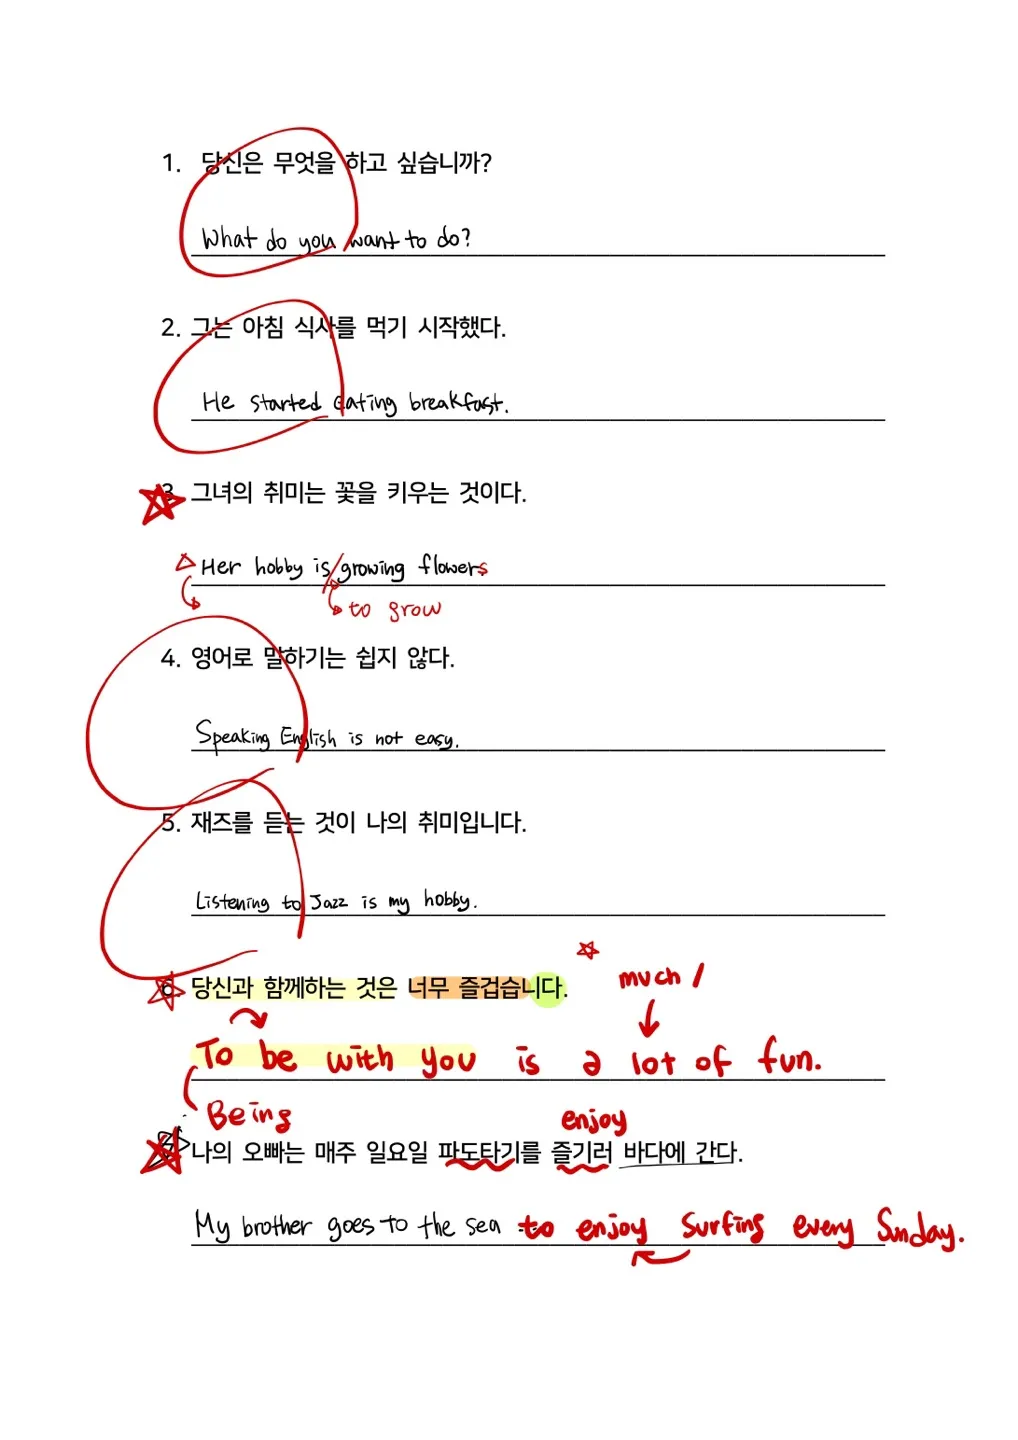 1. 당신은 무엇을 하고 싶습니까?
What do you want to do?
2. 그는 아침 식사를 먹기 시작했다.
He started eating breakfast.
3. 그녀의 취미는 꽃을 키우는 것이다.
Her hobby is growing flowers
to grow
4. 영어로 말하기는 쉽지 않다.
Speaking English is not easy.
5. 재즈를 듣는 것이 나의 취미입니다.
Listening to Jazz is my hobby.
much
6. 당신과 함께하는 것은 너무 즐겁습니다.
To be with you is a lot of fun.
Being
enjoy
7. 나의 오빠는 매주 일요일 파도타기를 즐기러 바다에 간다.
My brother goes to the sea to enjoy surfing every Sunday.